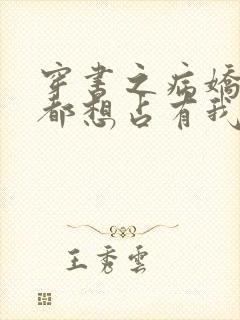 穿书之病嬌
都想占有我
王秀雲